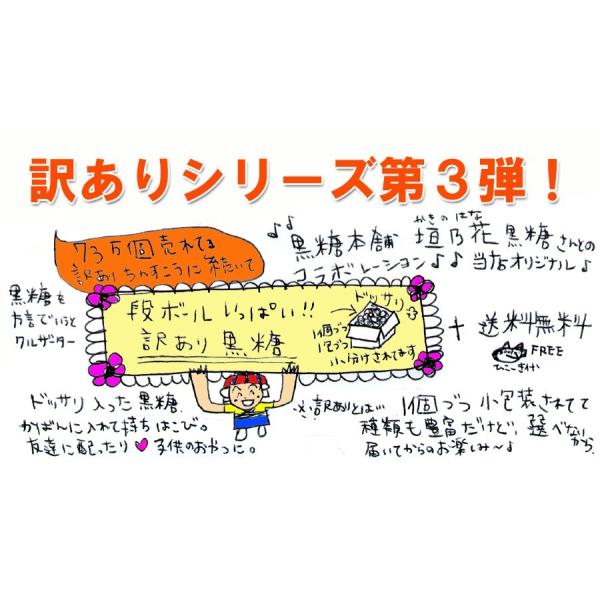 訳ありシリーズ第３弾！
73万個売れてる
訳ありちんすこうに続いて
♪♪黒糖本舗 垣乃花 黒糖さんとの
かきのはな
コラボレーション♪♪当店オリジナル♪
黒糖を
方言でいうと
クルザーター
段ボールいっぱい!!
訳あり黒糖
ドッサリ
1個づつ
小分けされてます
+ 送料無料
FREE
ひこーきけい
ドッサリ入った黒糖
かばんに入れて持ちはこび。
友達に配ったり♥子供のおやつに。
※訳ありとは… 1個づつ小包装されてて
種類も豊富だけど、選べないから
届いてからのお楽しみ〜♪